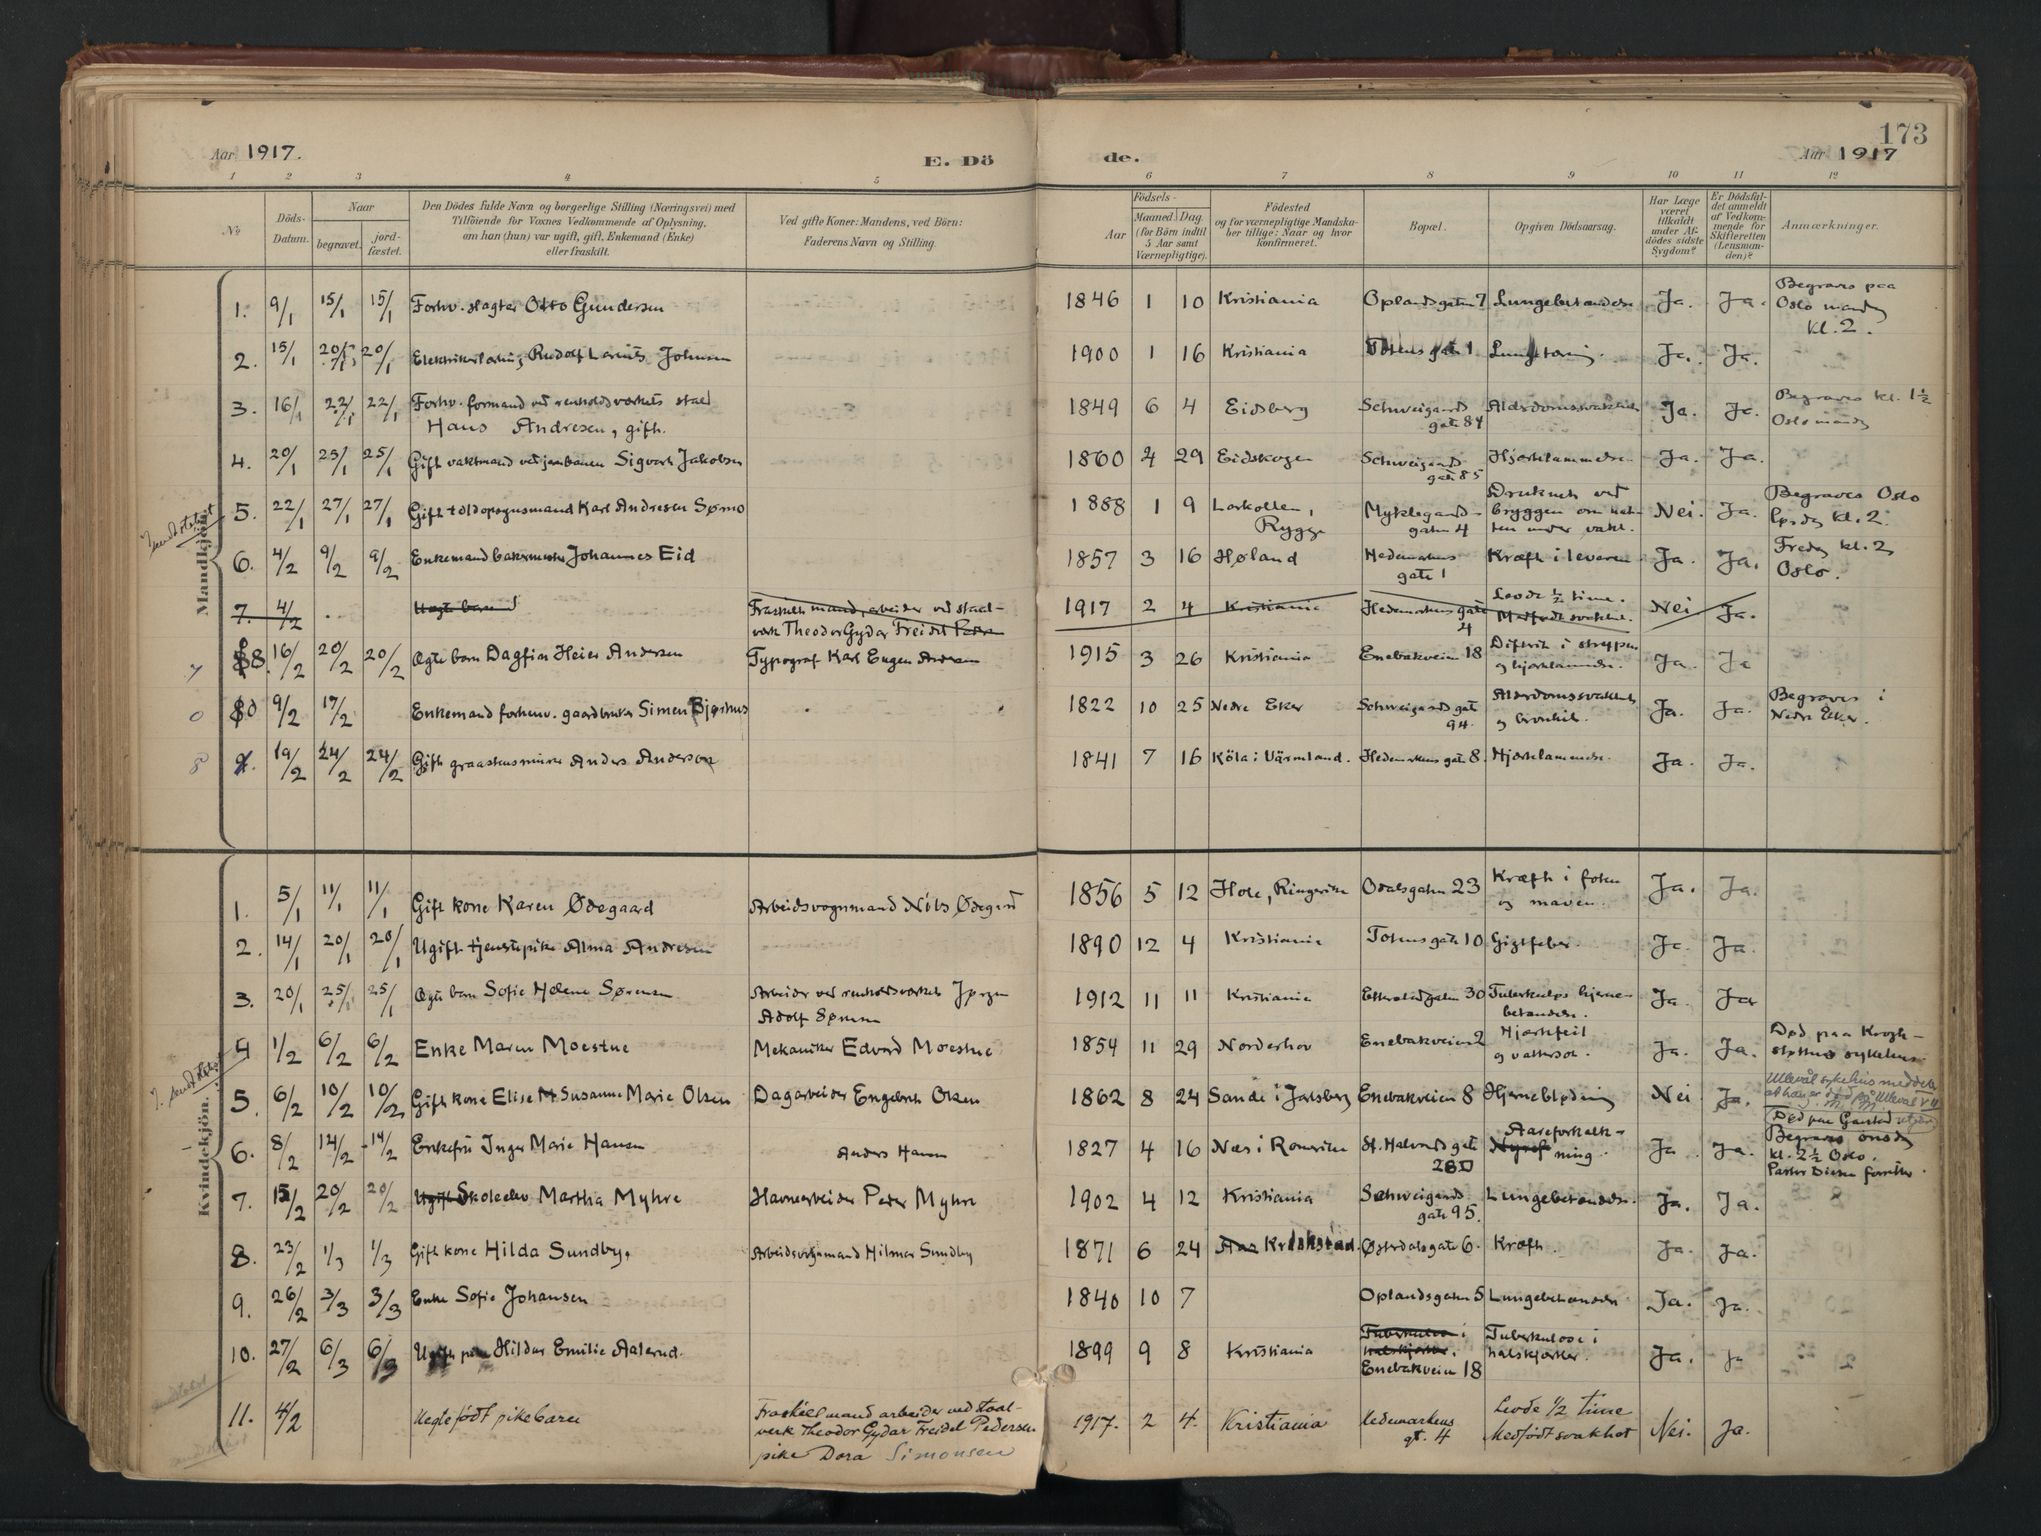 Aar 1917.
E. Dö
de.
173
Aar 1917
1 2 3 4 5 6 7 8 9 10 11 12
№
Döds-
Datum.
Naar
begravet.
jord-
fæstet.
Den Dödes fulde Navn og borgerlige Stilling (Næringsvei) med
Tilföiende for Voxnes Vedkommende af Oplysning,
om han (hun) var ugift, gift, Enkemand (Enke)
eller fraskilt.
Ved gifte Koner: Mandens, ved Börn:
Faderens Navn og Stilling.
Födsels-
Aar
Maaned. Dag.
(for Börn indtil
5 Aar samt
Værnepligtige).
Födested
og for værnepligtige Mandska-
ber tillige: Naar og hvor
konfirmeret.
Bopæl.
Opgiven Dödsaarsag.
Har Læge
været
tilkaldt
under Af-
dödes sidste
Sygdom?
Er Dödsfal-
det anmeldt
af Vedkom-
mende for
Skifteretten
(Lensman-
den)?
Anmærkninger.
Mandkjön.
1. 9/1 15/1 15/1 Forhv. slagter Otto Gundersen 1846 1 10 Kristiania Oplandsgaten 7 Lungebetændelse Ja. Ja. Begraves paa
Oslo mandag
kl. 2.
2. 15/1 20/1 20/1 Rudolf Lorents Johnsen 1900 1 16 Kristiania Totensgate 1 Ja. Ja.
3. 16/1 22/1 22/1 Forhv. formand ved renholdsverkets stald
Hans Andresen, gift. 1849 6 4 Eidsberg Schweigaards
gate 84 Alderdomssvakhet Ja. Ja. Begraves kl. 1½
Oslo mandag
4. 20/1 25/1 25/1 Gift vaktmand ved jernbanen Sigvart Jakobsen 1860 4 29 Eidskogen Schweigaards
gate 85 Hjertelammelse Ja. Ja.
5. 22/1 27/1 27/1 Gift toldopsynsmand Karl Andresen Sørno 1888 1 9 Larkollen,
Rygge Myklegaard-
gaten 4 Druknet ved
bryggen om nat-
ten under vakt. Nei. Ja. Begraves Oslo
lørdag kl. 2.
6. 4/2 9/2 9/2 Enkemand bakermester Johannes Eid 1857 3 16 Høland Hedemarkens
gate 1 Kræft i leveren Ja. Ja. Fredag kl. 2
Oslo.
7. 4/2 Uegte barn Fraskilt mand, arbeider ved staal-
verk Theodor Gydar Freidel Peders 1917 2 4 Kristiania Hedemarkens gate
4 Levde ½ time.
Medfødt svakhet. Nei Ja.
7 8. 16/2 20/2 20/2 Ægte barn Dagfin Heier Andersen Typograf Karl Eugen Andersen 1915 3 26 Kristiania Enebakveien 18 Difteri i strupen
og hjertelammelse. Ja. Ja
0 9/2 17/2 Enkemand forhenv. gaardbruker Simen Bjørhus 1822 10 25 Nedre Eker Schweigaards gate
94. Alderdomssvakhet
og bronkit. Ja. Ja. Begraves i
Nedre Eker.
8 19/2 24/2 24/2 Gift graastensmurer Anders Anderson 1841 7 16 Köla i Värmland. Hedemarkens gate 8. Hjertelammelse. Ja. Ja.
Kvindekjön.
1. 5/1 11/1 11/1 Gift kone Karen Ødegaard Arbeidsvognmand Nils Ødegaard 1856 5 12 Hole, Ringerike Odalsgaten 23 Kræft i foten
og maven. Ja. Ja.
2. 14/1 20/1 20/1 Ugift tjenestepike Alma Andresen 1890 12 4 Kristiania Totensgate 10 Gigtfeber. Ja. Ja.
3. 20/1 25/1 25/1 Ægte barn Sofie Helene Sørensen Arbeider ved renholdsverket Jørgen
Adolf Sørensen 1912 11 11 Kristiania Etterstadgaten 30 Tuberkuløs hjerne-
betændelse. Ja. Ja
4 1/2 6/2 6/2 Enke Maren Moestue Mekaniker Edvard Moestue 1854 11 29 Norderhov Enebakveien 2 Hjertefeil
og vattersot. Ja. Ja. Død paa Krogh-
støttens sykehus.
5. 6/2 10/2 10/2 Gift kone Elise Susanne Marie Olsen Dagarbeider Engebret Olsen 1862 8 24 Sande i Jarlsberg Enebakveien 8 Hjerneblødning Nei Ja. Ullevål sykehus meddeler
6. 8/2 14/2 14/2 Enkefru Inger Marie Hansen Anders Hansen 1827 4 16 Næs i Romerike St. Halvards gate
28 D Aareforkalk-
ning. Ja Ja. Død paa Gaustad
Begraves onsdag
kl. 2½ Oslo.
7. 15/2 20/2 20/2 Ugift Skoleelev Martha Myhre Havnearbeider Peder Myhre 1902 4 12 Kristiania Schweigaards
gate 95. Lungebetændelse. Ja. Ja.
8. 23/2 1/3 1/3 Gift kone Hilda Sundby. Arbeidsvognmand Hilmar Sundby 1871 6 24 Aas Østerdalsgate 6. Kræft. Ja. Ja.
9. 26/2 3/3 3/3 Enke Sofie Johansen 1840 10 7 Oplandsgaten 5 Lungebetændelse Ja. Ja.
10. 27/2 6/3 6/3 Ugift pike Hildur Emilie Aalerud. 1899 9 8 Kristiania Tuberkulose i
halskjertler.
Enebakveien 18 Tuberkulose i
halskjertler. Ja. Ja
11. 4/2 Uegte født pikebarn Fraskilt mand arbeider ved staal-
verk Theodor Gydar Freidel Pedersen
pike Dora Simonsen 1917. 2 4. Kristiania Hedemarkens
gt. 4 Levde ½ time
Medfødt svakhet Nei. Ja.